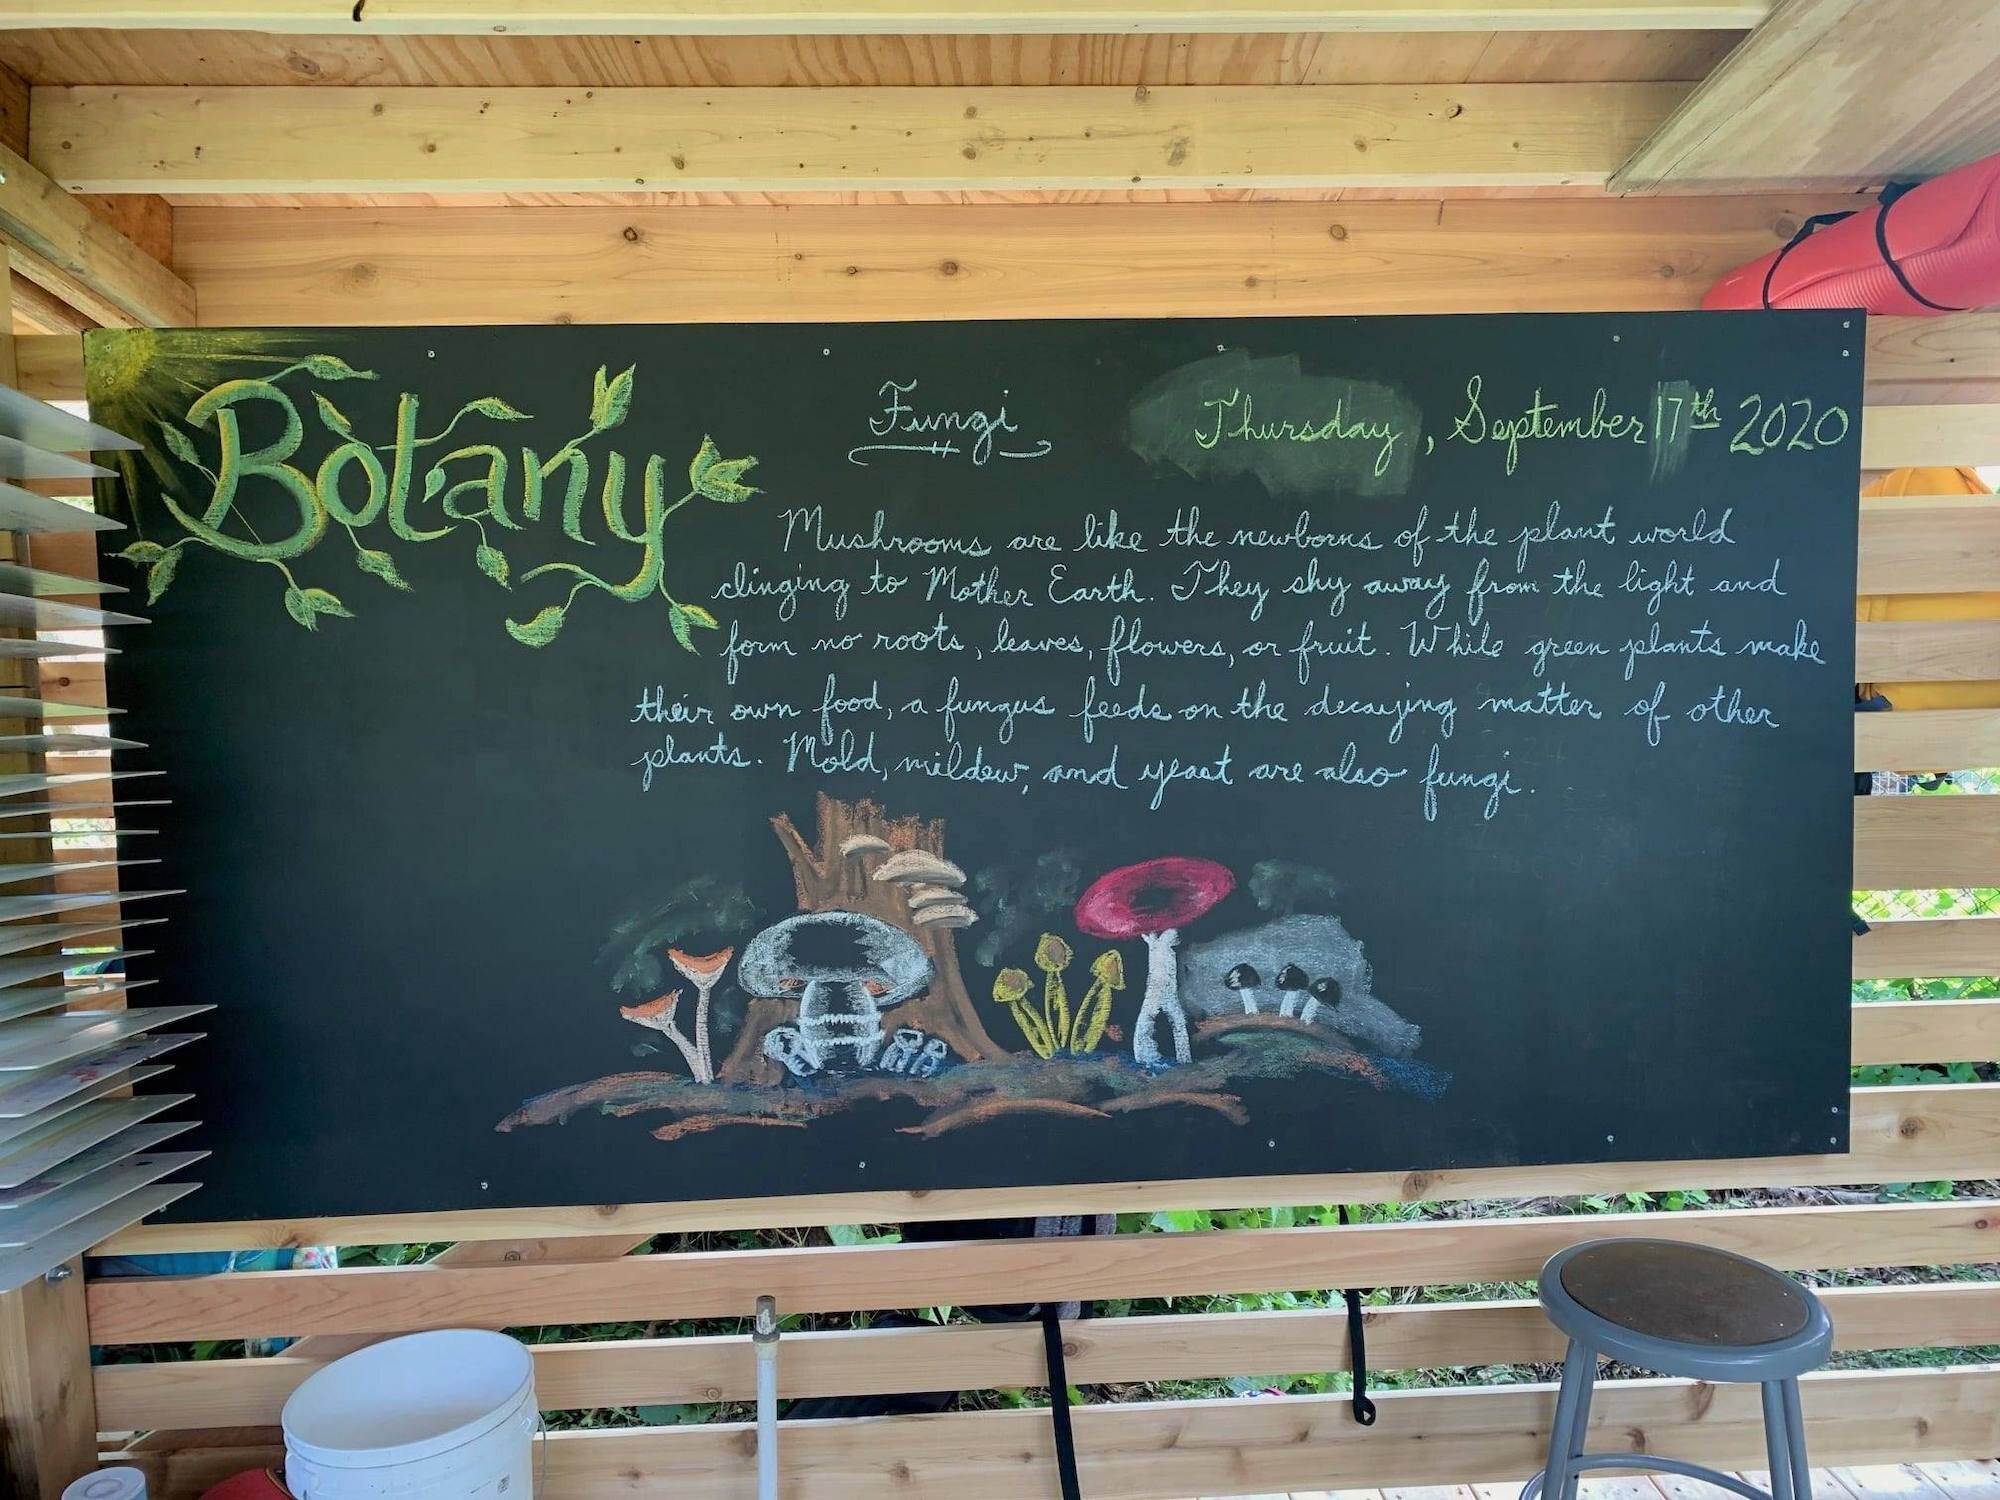 Botany
Fungi
Thursday, September 17th 2020
Mushrooms are like the newborns of the plant world
clinging to Mother Earth. They shy away from the light and
form no roots, leaves, flowers, or fruit. While green plants make
their own food, a fungus feeds on the decaying matter of other
plants. Mold, mildew, and yeast are also fungi.